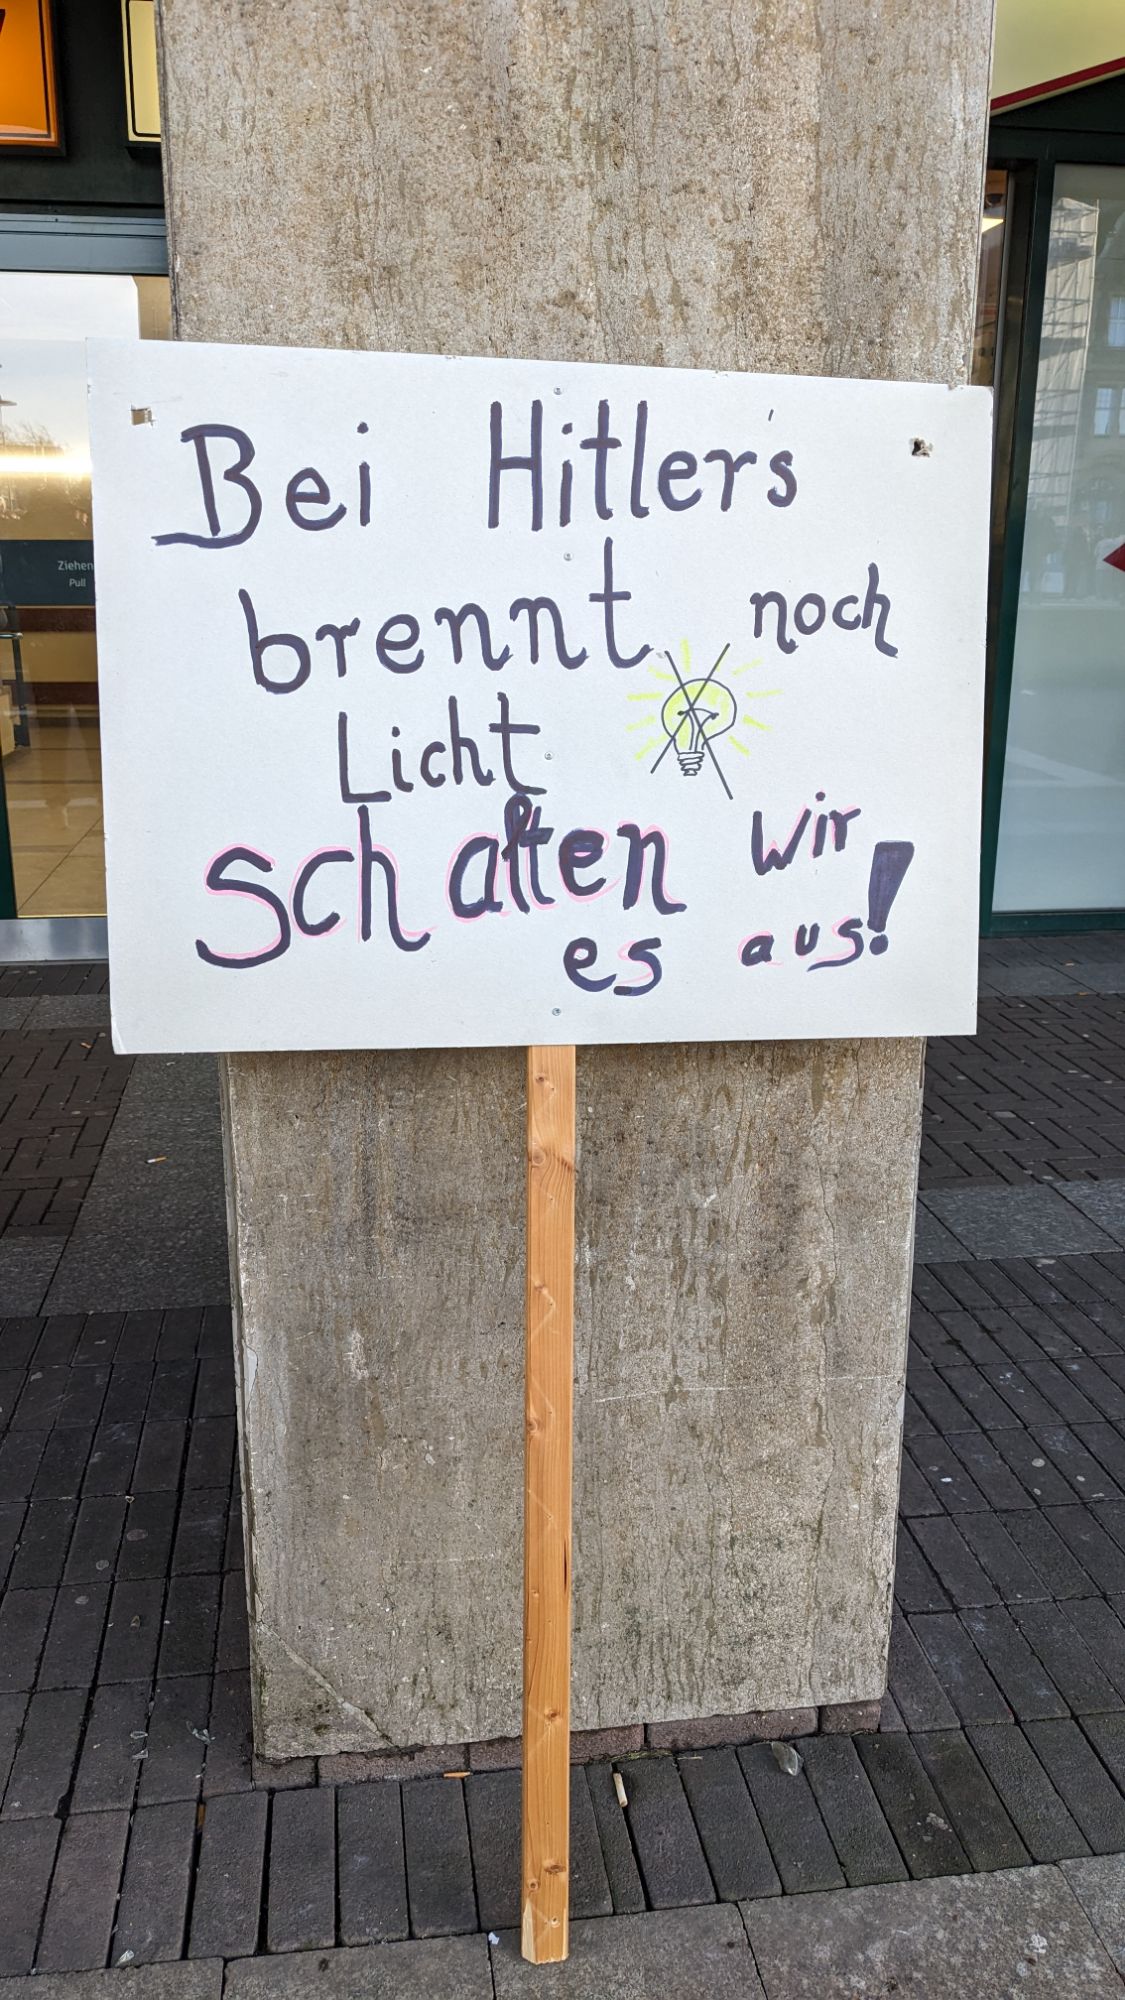 Bei Hitler's
brennt noch
Licht
schalten wir
es aus!
Ziehen
Pull